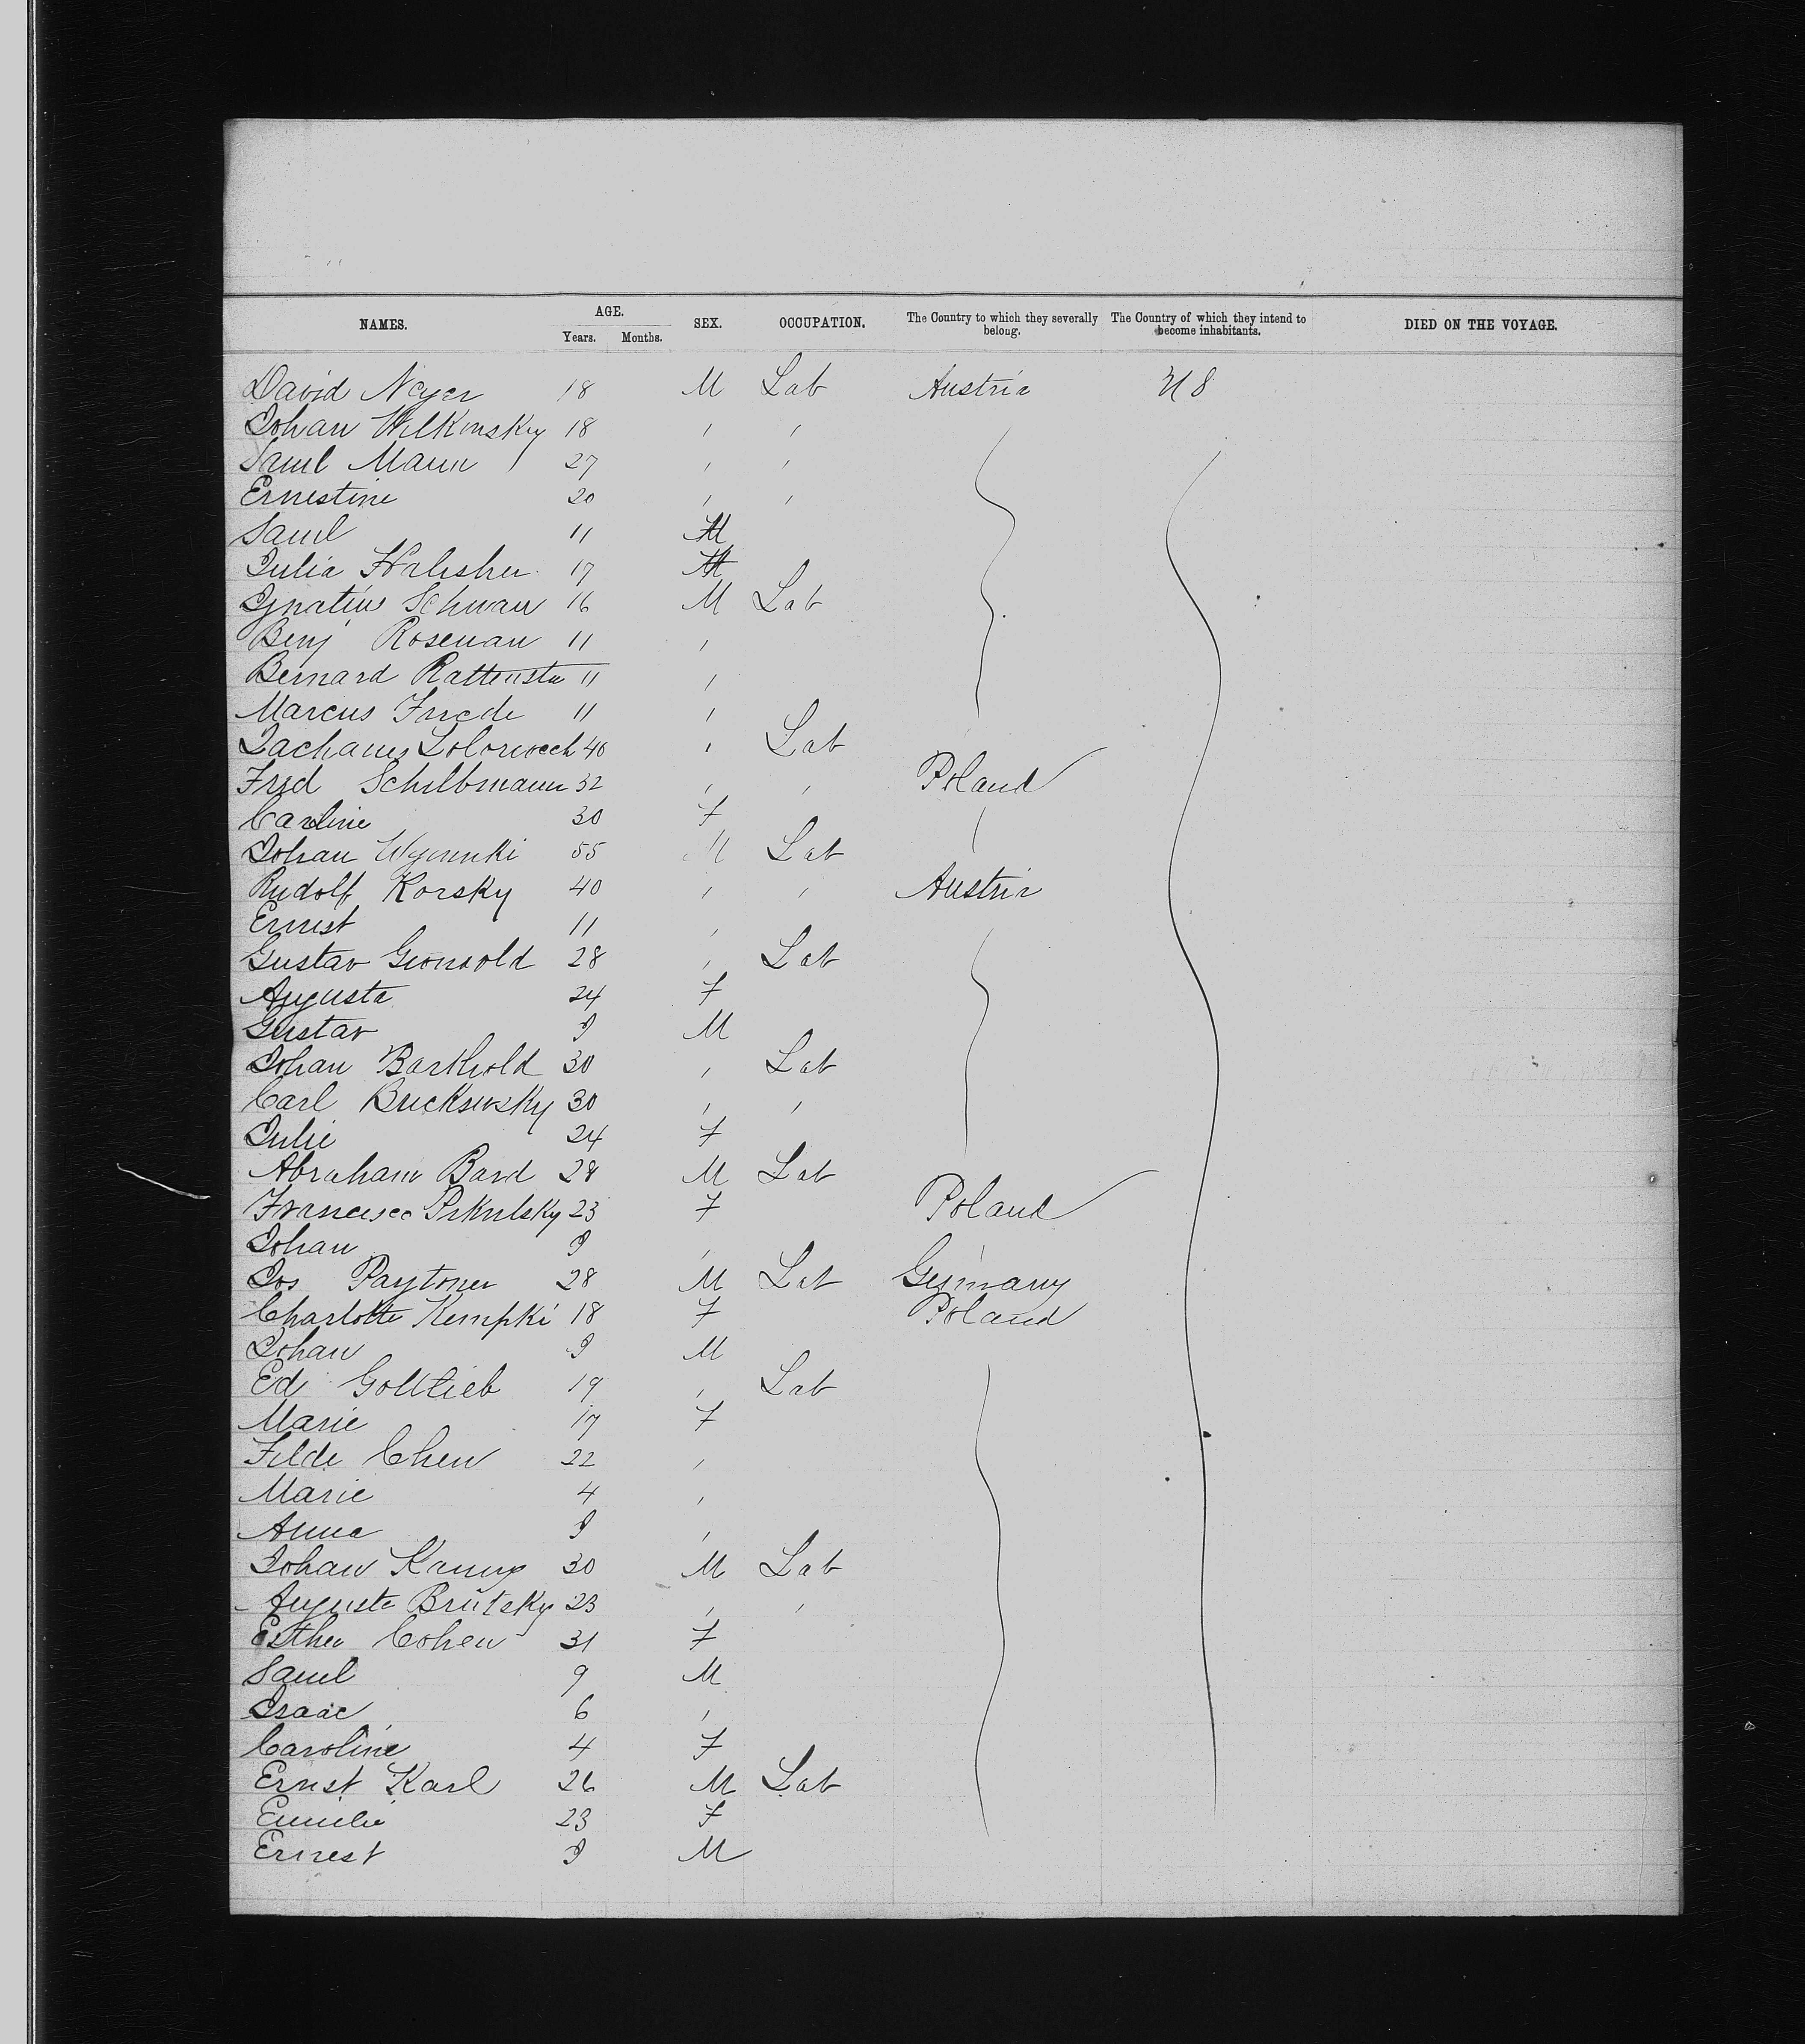 NAMES. AGE. SEX. OCCUPATION. The Country to which they severally belong. The Country of which they intend to become inhabitants. DIED ON THE VOYAGE.
Years. Months.
David Neyer 18 M Lab Austria U S
Johan Wilkinsky 18 " "
Saml Mann 27 " "
Ernestine 20 " "
Saml 11 M
Julia 17
Ignatius Schwan 16 M Lab
Benj Rosenau 11 "
Bernard 11 "
Marcus Friede 11 "
40 " Lab
Fred Schilbmann 32 " " Poland
Caroline 30 F
Johan 55 M Lab
Rudolf Korsky 40 " " Austria
Ernest 11 "
Gustav 28 " Lab
Augusta 24 F
Gustav 9 M
Johan Barthold 30 " Lab
Carl 30 " "
Julie 24 F
Abraham Band 28 M Lab
23 F Poland
Johan 9 " "
Jos Paytoner 28 M Lab Germany
Charlotte Kempki 18 F Poland
Johan 9 M
Ed Gottlieb 19 " Lab
Marie 17 F
Filde Chen 22 "
Marie 4 "
Anna 9 "
Johan 30 M Lab
Auguste Brutsky 23 " "
Esther Cohen 31 F
Saml 9 M
Isaac 6 "
Caroline 4 F
Ernst Karl 26 M Lab
Emilie 23 F
Ernest 9 M